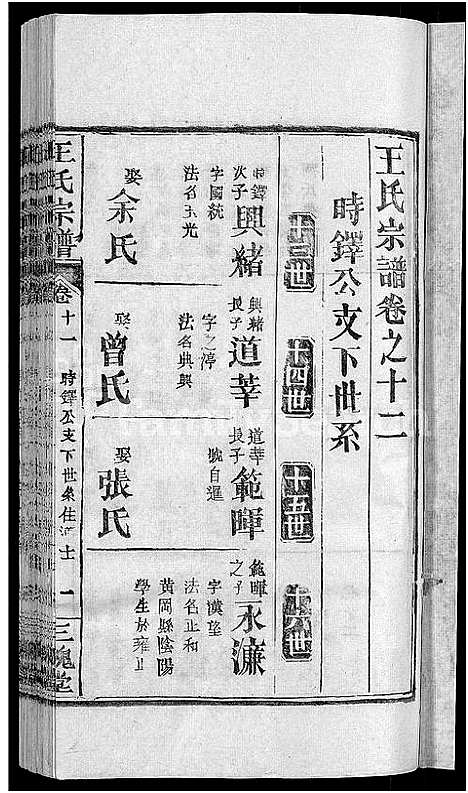 王氏宗譜卷之十二
時鐸公支下世系
十三世
十四世
十五世
十六世
時鐸次子
興緒
字國統
法名玉光
娶
余氏
興緒長子
道莘
字之停
法名典興
娶
曾氏
道莘長子
範暉
號自暹
娶
張氏
範暉之子
永濂
字漢望
法名正和
黃岡縣陰陽
學生於雍正
王氏宗譜
卷十一
時鐸公支下世系住
一
三槐堂